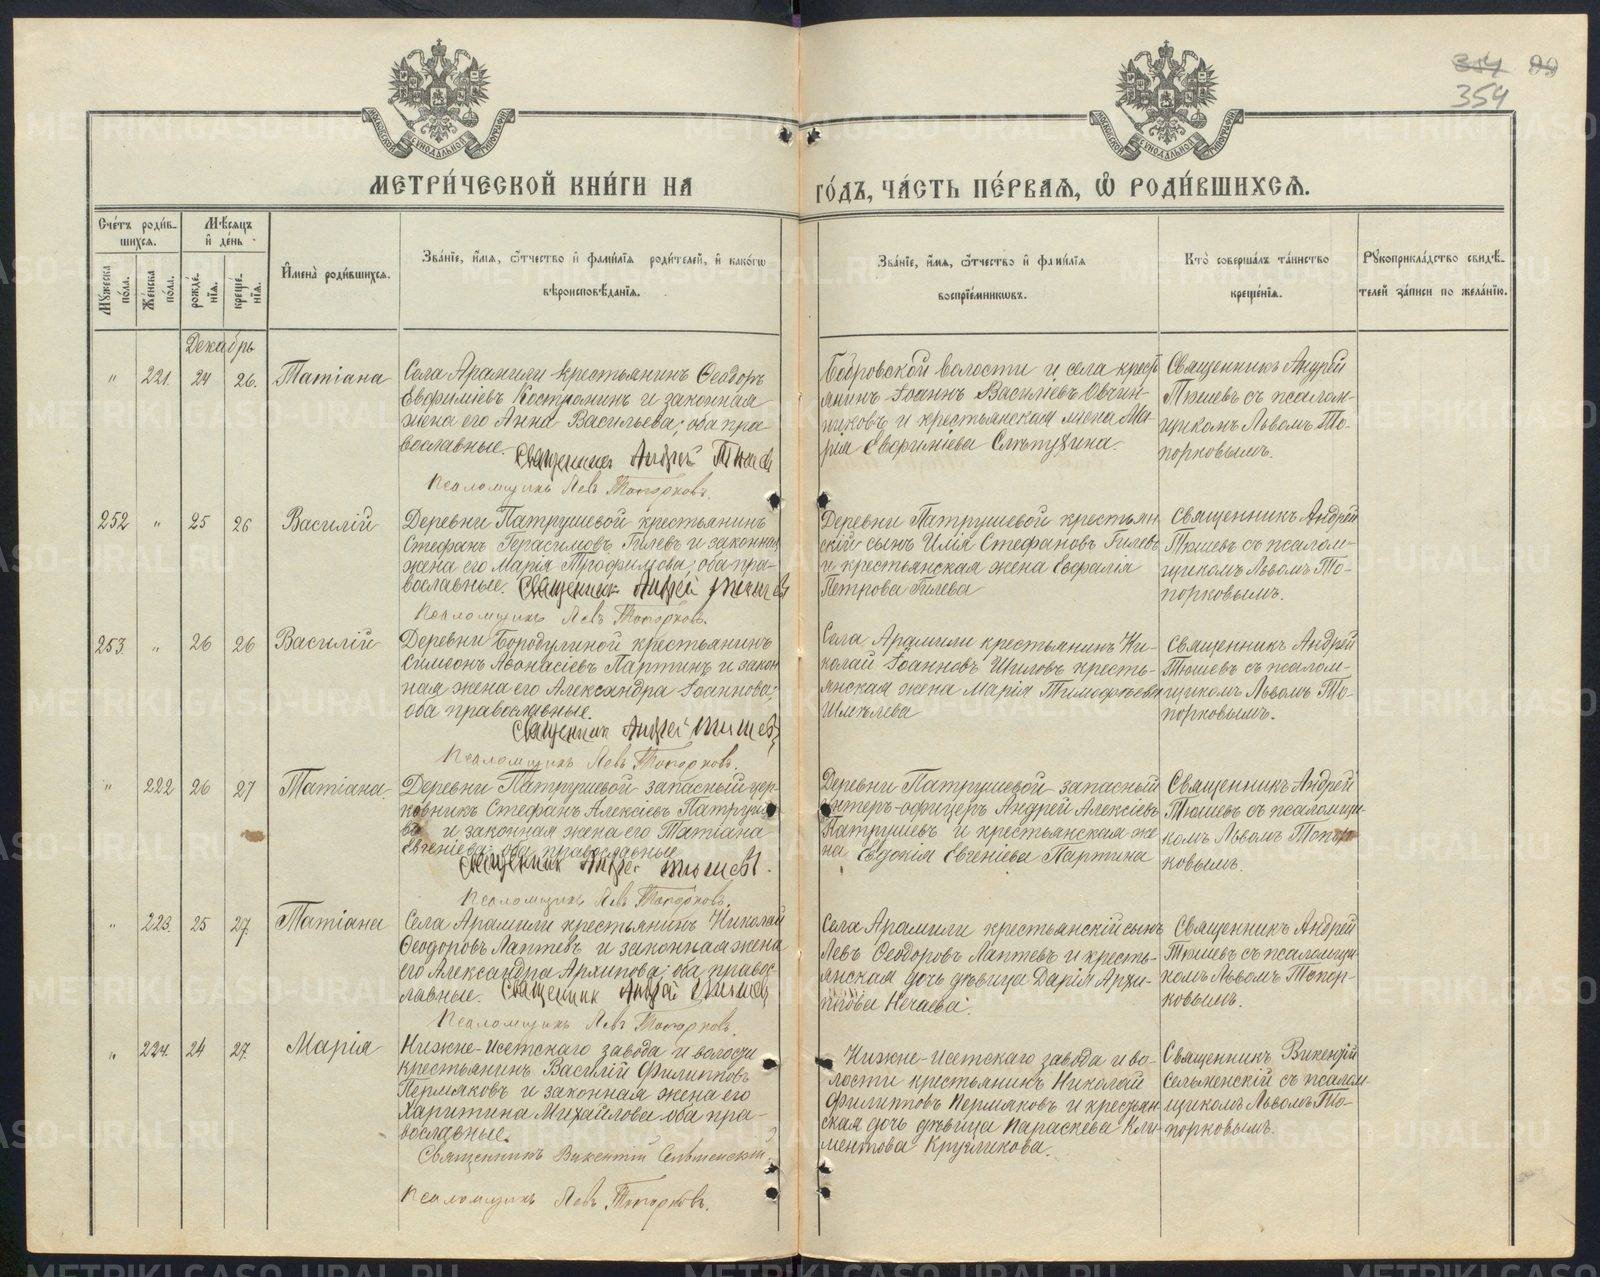 354 99
354
МОСКОВСКОЙ СѴНОДАЛЬНОЙ ТИПОГРАФІИ
МОСКОВСКОЙ СѴНОДАЛЬНОЙ ТИПОГРАФІИ
МЕТРИ́ЧЕСКОЙ КНИ́ГИ НА
ГО́ДЪ, ЧА́СТЬ ПЕ́РВАЯ, Ѽ РОДИ́ВШИХСЯ.
Сче́тъ роди́в-
шихся.
Мѣ́сяцъ
и҆ де́нь
Мꙋ́жеска по́ла.
Же́нска по́ла.
рожде́-
нїя.
креще́-
нїя.
И҆мена̀ роди́вшихся.
Зва́нїе, и҆́мя, ѻ҆́тчество и҆ фами́лїя роди́телей, и҆ како́гѡ
вѣроисповѣ́данїя.
Зва́нїе, и҆́мя, ѻ҆́тчество и҆ фами́лїя
воспрїе́мникѡвъ.
Кто̀ соверша́лъ та́инство
креще́нїя.
Рꙋкоприкла́дство свидѣ́-
телей за́писи по жела́нїю.
Декабрь
" 221. 24 26. Татіана
Села Арамили крестьянинъ Ѳеодоръ
Евѳиміевъ Костроминъ и законная
жена его Анна Васильева; оба пра-
вославные. Священникъ Андрей Тюшевъ
Псаломщикъ Левъ Топорковъ.
Бобровской волости и села кресть-
янинъ Іоаннъ Васильевъ Овчин-
никовъ и крестьянская жена Ма-
рія Евфиміева Слѣпухина.
Священникъ Андрей
Тюшевъ съ псалом-
щикомъ Львомъ То-
порковымъ.
252 " 25 26 Василій
Деревни Патрушевой крестьянинъ
Стефанъ Герасимовъ Гилевъ и законная
жена его Марія Трофимова; оба пра-
вославные. Священникъ Андрей Тюшевъ
Псаломщикъ Левъ Топорковъ.
Деревни Патрушевой крестьян-
скій сынъ Илія Стефановъ Гилевъ
и крестьянская жена Евфалія
Петрова Гилева
Священникъ Андрей
Тюшевъ съ псалом-
щикомъ Львомъ То-
порковымъ.
253. " 26 26 Василій
Деревни Бородулиной крестьянинъ
Симеонъ Аѳонасіевъ Партинъ и закон-
ная жена его Александра Іоаннова;
оба православные.
Священникъ Андрей Тюшевъ
Псаломщикъ Левъ Топорковъ.
Села Арамили крестьянинъ Ни-
колай Іоанновъ Шиловъ кресть-
янская жена Марія Тимоѳеева
Шмелева
Священникъ Андрей
Тюшевъ съ псалом-
щикомъ Львомъ То-
порковымъ.
" 222 26 27 Татіана.
Деревни Патрушевой запасный цер-
ковникъ Стефанъ Алексіевъ Патруш-
евъ и законная жена его Татіана
Евгеніева; оба православные
Священникъ Андрей Тюшевъ.
Псаломщикъ Левъ Топорковъ.
Деревни Патрушевой запасный
унтеръ-офицеръ Андрей Алексіевъ
Патрушевъ и крестьянская же-
на Евдокія Евгеніева Партина
Священникъ Андрей
Тюшевъ съ псаломщи-
комъ Львомъ Топор-
ковымъ.
" 223. 25 27. Татіана
Села Арамили крестьянинъ Николай
Ѳеодоровъ Лаптевъ и законная жена
его Александра Архипова; оба правос-
лавные. Священникъ Андрей Тюшевъ
Псаломщикъ Левъ Топорковъ.
Села Арамили крестьянскій сынъ
Левъ Ѳеодоровъ Лаптевъ и кресть-
янская дочь дѣвица Дарія Архи-
пова Нечаева.
Священникъ Андрей
Тюшевъ съ псаломщи-
комъ Львомъ Топор-
ковымъ.
" 224. 24 27. Марія
Нижне-Исетскаго завода и волости
крестьянинъ Василій Филипповъ
Пермяковъ и законная жена его
Харитина Михайлова оба пра-
вославные.
Священникъ Викентій Сельменскій.
Псаломщикъ Левъ Топорковъ.
Нижне-Исетскаго завода и во-
лости крестьянинъ Николай
Филипповъ Пермяковъ и крестьян-
ская дочь дѣвица Параскева Кли-
ментова Кругликова.
Священникъ Викентій
Сельменскій съ псалом-
щикомъ Львомъ То-
порковымъ.
METRIKI.GASO-URAL.RU